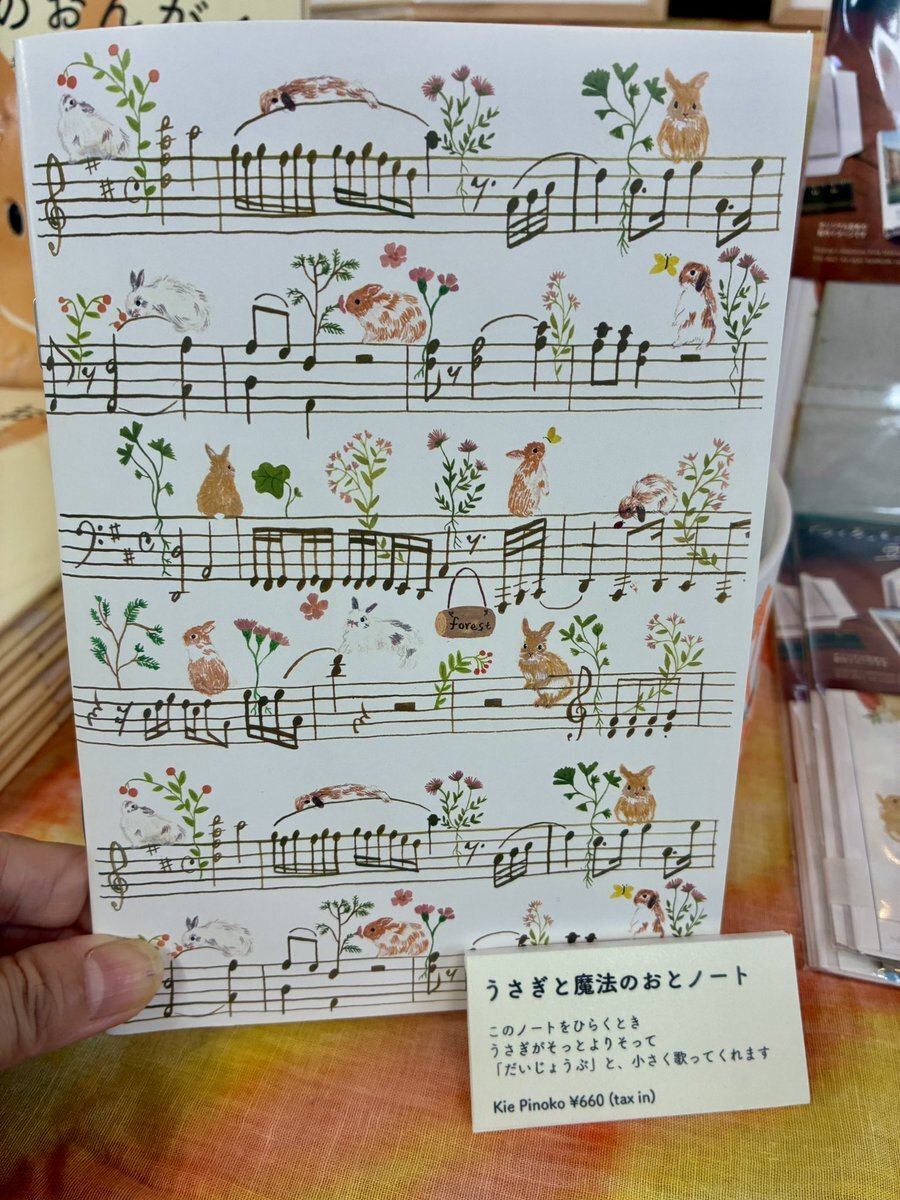 のおんが
forest
うさぎと魔法のおとノート
このノートをひらくとき
うさぎがそっとよりそって
「だいじょうぶ」と、小さく歌ってくれます
Kie Pinoko ¥660 (tax in)